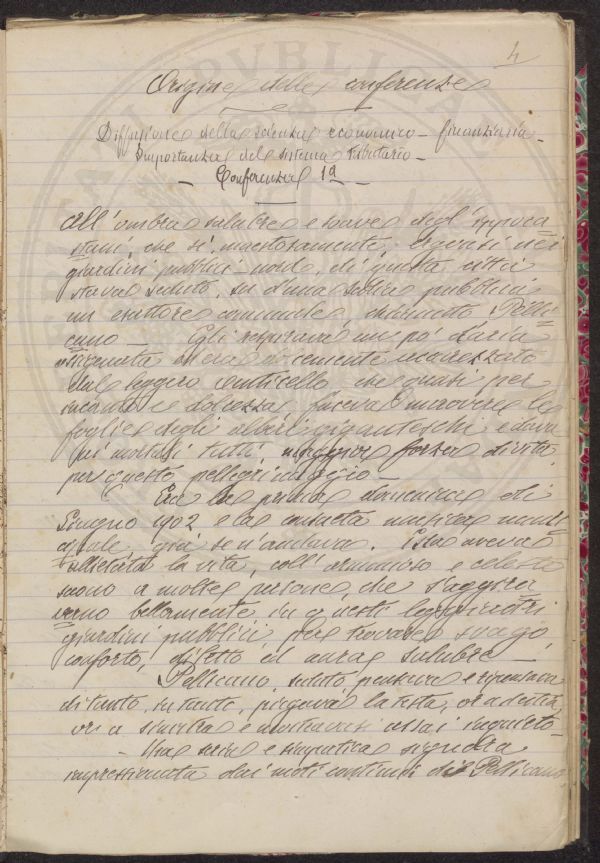 4
Origine delle conferenze
Diffusione della scienza economico - finanziaria -
Importanza del sistema tributario -
- Conferenza 1a -
All'ombra salubre e soave degl'ippoca
stani, che sì maestosamente ergonsi nei
giardini pubblici - nord, di questa città
stava seduto, su d'una sedia pubblica
un esattore comunale chiamato Pelli
cano - Egli respirava un po' d'aria
ossigenata ed era dolcemente accarezzato
dal leggero venticello che quasi per
incanto e dolcezza, faceva muovere le
foglie degli alberi giganteschi e dava
ai mortali tutti, maggior forza di vita
per questo pellegrinaggio -
Era la prima domenica di
Giugno 1902 e la consueta musica muni
cipale già se n'andava. Essa aveva
allietata la vita, coll'armonioso e celeste
suono a molte persone che s'aggira
vano bellamente in questi leggiadri
giardini pubblici per trovare svago
conforto, diletto ed aura salubre -
Pellicano, seduto pensava e ripensava
di tanto, in tanto, piegava la testa, or a destra,
or a sinistra e mostravasi assai inquieto -
- Una seria e simpatica signora
impressionata dai moti continui di Pellicano